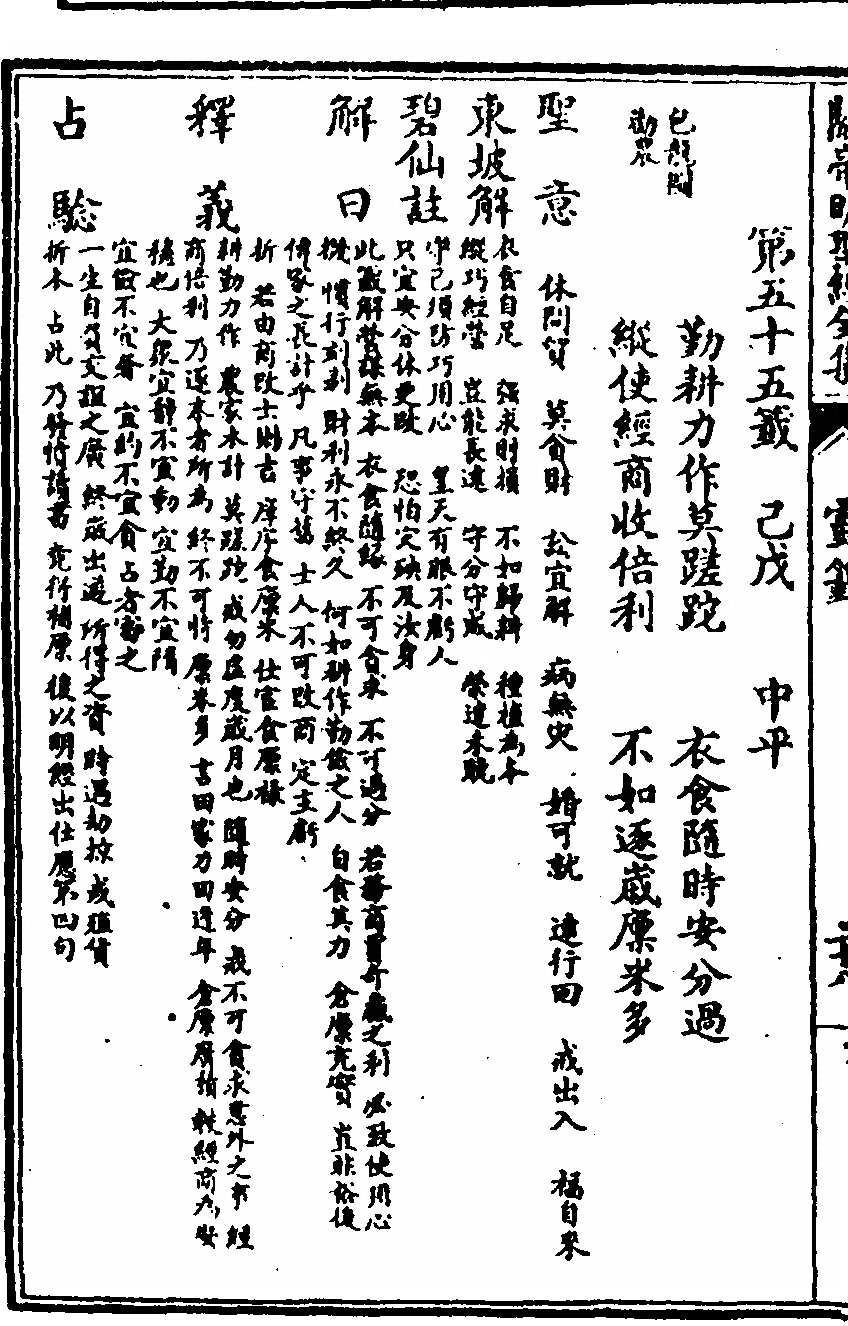 關帝明聖經全集 靈籤
第五十五籤 己戊 中平
包龍圖
勸農
勤耕力作莫蹉跎 衣食隨時安分過
縱使經商收倍利 不如逐歲廩米多
聖意 休問貿 莫貪財 訟宜解 病無災 婚可就 遠行回 戒出入 福自來
東坡解 衣食自足 強求財損 不如歸耕 種植為本
縱巧經營 豈能長遠 守分守成 榮達未晚
碧仙註 守己須防巧用心 皇天有眼不虧人
只宜安分休更改 恐怕災殃及汝身
解曰 此籤解營謀無本 衣食隨緣 不可貪求 不可過分 若務商賈奇贏之利 必致使用心
機 慣行刻剥 財利永不終久 何如耕作勤儉之人 自食其力 倉廩充實 豈非裕後
傳家之長計乎 凡事守舊 士人不可改商 定主虧
折 若由商改士則吉 庠序食廩米 仕宦食廩祿
釋義 耕勤力作 農家本計 莫蹉跎 戒勿虛度歲月也 隨時安分 戒不可貪求意外之事 經
商倍利 乃逐末者所為 終不可恃 廩米多 言田家力田逢年 倉廩廣積 較經商為安
穩也 大概宜靜不宜動 宜勤不宜惰
宜儉不宜奢 宜約不宜貪 占者審之
占驗 一生自負交遊之廣 終歲出遊 所得之資 時遇劫掠 或殖貨
折本 占此 乃發憤讀書 竟行補廩 後以明經出仕 應第四句